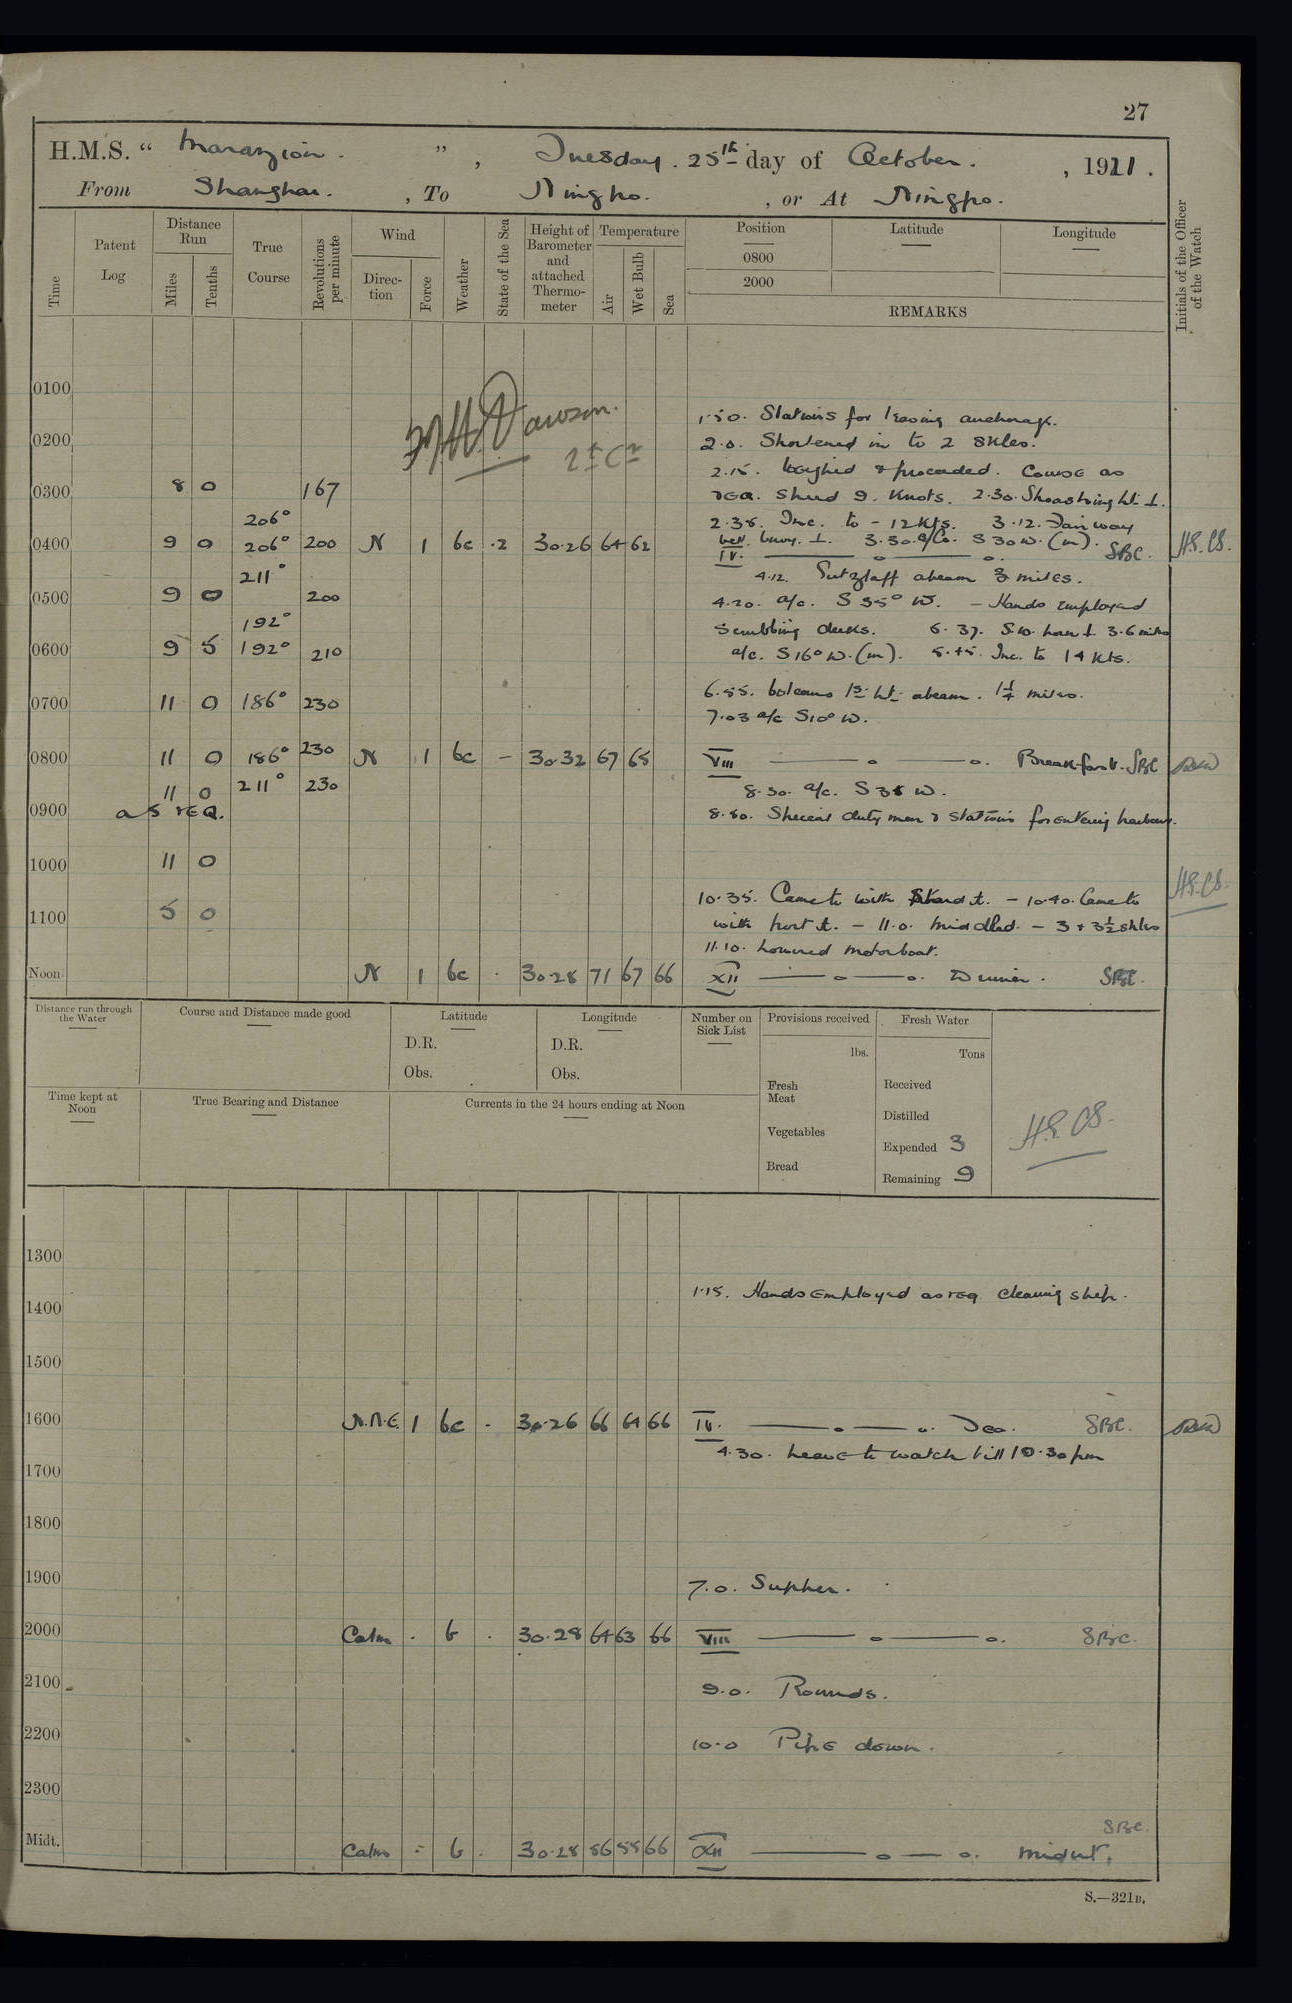 27
H.M.S. “ Marazion. ” , Tuesday. 25th day of October. , 1921.
From Shanghai. , To Ningpo. , or At Ningpo.
Time
Patent Log
Distance Run
Miles
Tenths
True Course
Revolutions per minute
Wind
Direction
Force
Weather
State of the Sea
Height of Barometer and attached Thermometer
Temperature
Air
Wet Bulb
Sea
Position
Latitude
Longitude
0800
2000
REMARKS
Initials of the Officer of the Watch
0100
1.50. Stations for leaving anchorage.
0200
2.0. Shortened in to 2 Skles.
2.15. Weighed & proceeded. Course as
0300 8 0 167
req. Speed 9. Knots. 2.30. ht. ⊥.
206°
2.38. Inc. to - 12 Kts. 3.12. Fairway
0400 9 0 206° 200 N 1 bc .2 30.26 64 62
bell buoy. ⊥. 3.30. a/Co. S 30 W. (m).
IV. SBC. H.S.CS.
211°
4.12. Gutzlaff abeam 3 miles.
0500 9 0 200
4.20. a/c. S 35° W. - Hands Employed
192°
Scrubbing decks. 5.37. 3.6 miles
0600 9 5 192° 210
a/c. S 16° W. (m). 5.45. Inc. to 14 Kts.
6.55. Volcano lt. abeam. 1¼ miles.
0700 11 0 186° 230
7.03 a/c S10° W.
0800 11 0 186° 230 N 1 bc - 30.32 67 65
VIII Breakfast. SBC
11 0 211° 230
8.30. a/c. S 35 W.
0900 as req.
8.50. Special duty men & Stations for entering harbour.
1000 11 0
10.35. Came to with Starbd ⚓. - 10.40. Came to
1100 5 0
with Port ⚓. - 11.0. Middled. - 3 & 3½ shkls
11.10. Lowered motorboat.
Noon N 1 bc . 30.28 71 67 66
XII Dinner. SBC.
H.S.CS.
Distance run through the Water
Course and Distance made good
Latitude
D.R.
Obs.
Longitude
D.R.
Obs.
Number on Sick List
Provisions received
lbs.
Fresh Meat
Vegetables
Bread
Fresh Water
Tons
Received
Distilled
Expended 3
Remaining 9
H.S. CS.
Time kept at Noon
True Bearing and Distance
Currents in the 24 hours ending at Noon
1300
1.15. Hands Employed as req cleaning ship.
1400
1500
1600 N.N.E. 1 bc - 30.26 66 64 66
IV. Tea. SBC.
4.30. Leave to watch till 10.30 pm
1700
1800
1900
7.0. Supper.
2000 Calm . b . 30.28 64 63 66
VIII SBC.
2100
9.0. Rounds.
2200
10.0 Pipe down.
2300
Midt. Calm - b . 30.28 56 55 66
XII midnt. SBC.
S.—321B.